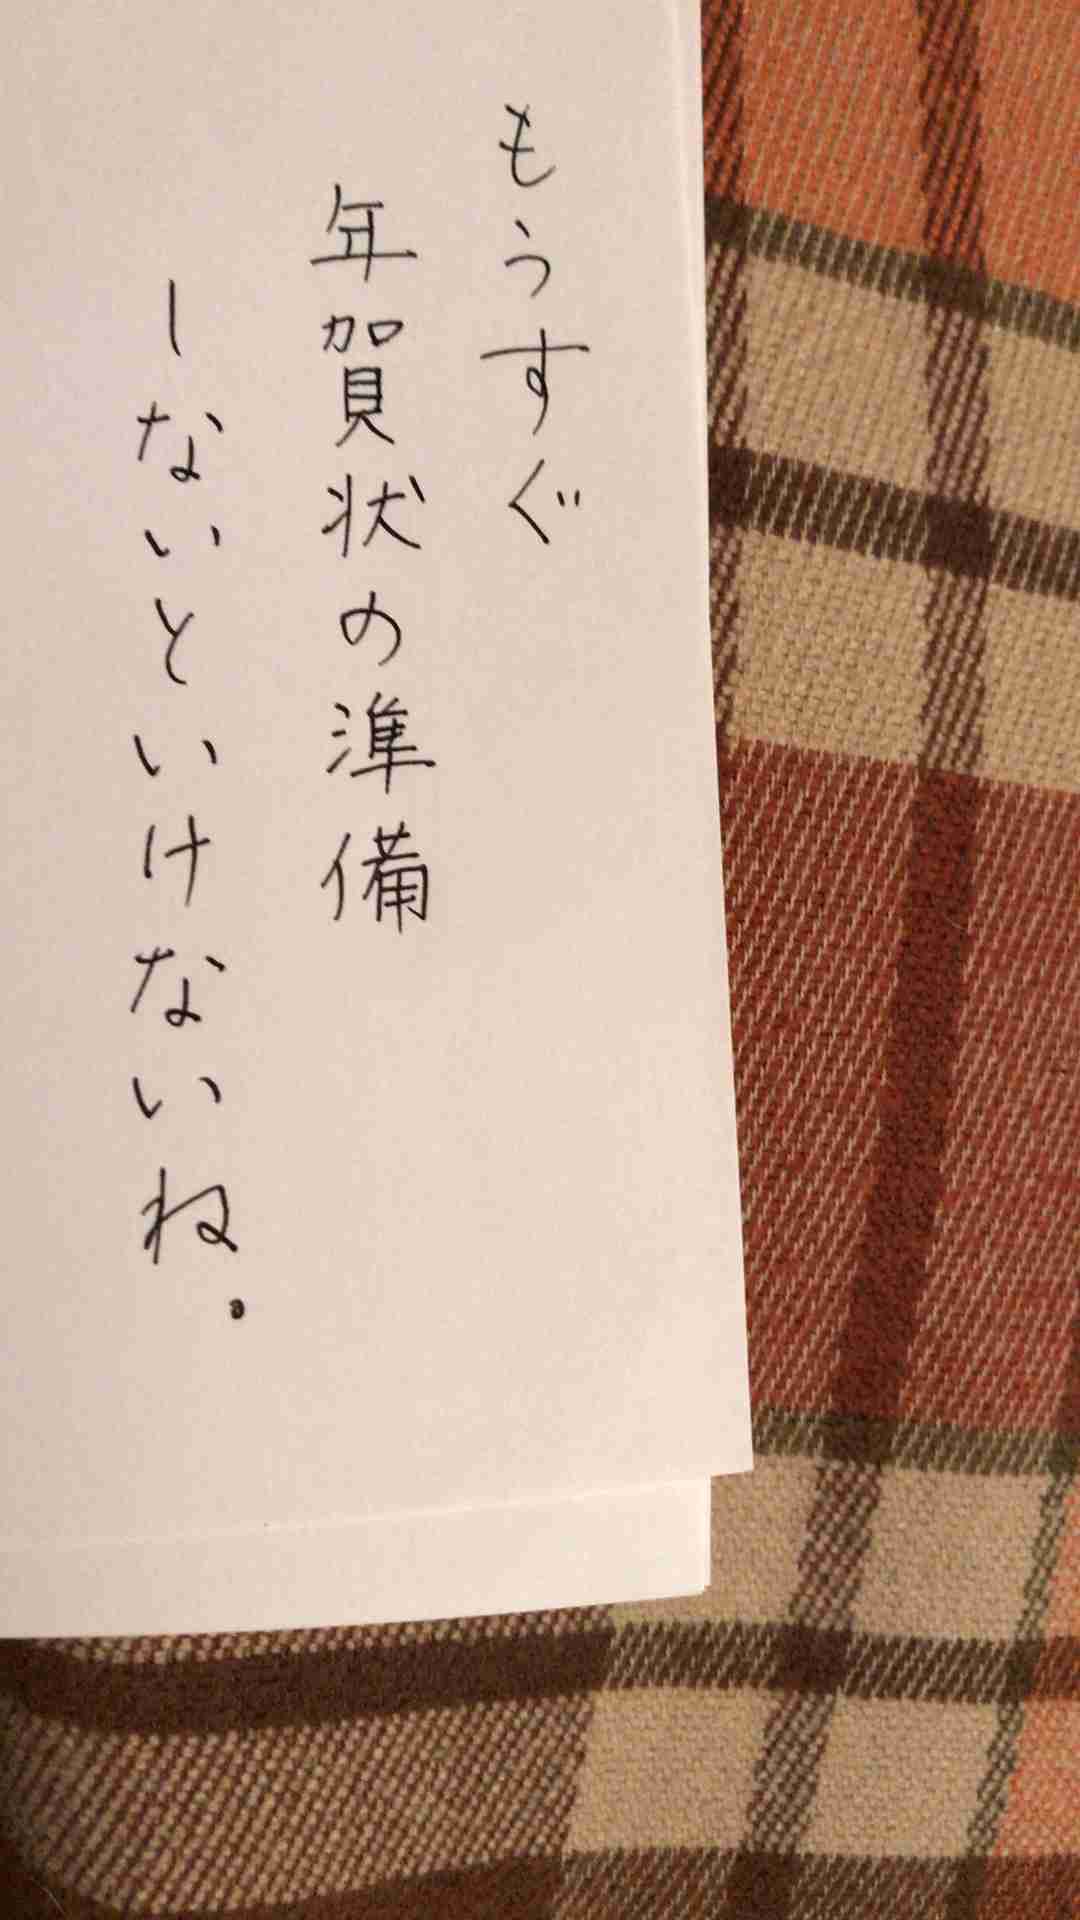 もうすぐ
年賀状の準備
しないといけないね.